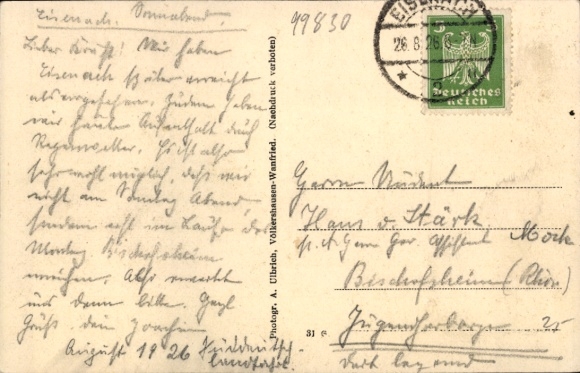 Eisenach. Sonnabend.
Lieber Kräft! Wir haben
Eisenach später erreicht
als vorgesehen. Zudem haben
wir heute Aufenthalt durch
Regenwetter. Es ist also
sehr wohl möglich, daß wir
nicht am Sonntag Abend,
sondern erst im Laufe des
Montag Bischofsheim
erreichen. Also erwartet
uns dann bitte. Herzl.
Gruß dein Joachim
August 1926 Süddeutsch-
landfahrt.
49830
Photogr. A. Ulbrich, Völkershausen-Wanfried. (Nachdruck verboten)
31
EISENACH
26.8.26
5
Deutsches
Reich
Herrn Student
Hans v. Stärk
p. A. Herrn Ger. Assistent Mock
Bischofsheim (Rhön)
Jugendherberge
dort liegend
25